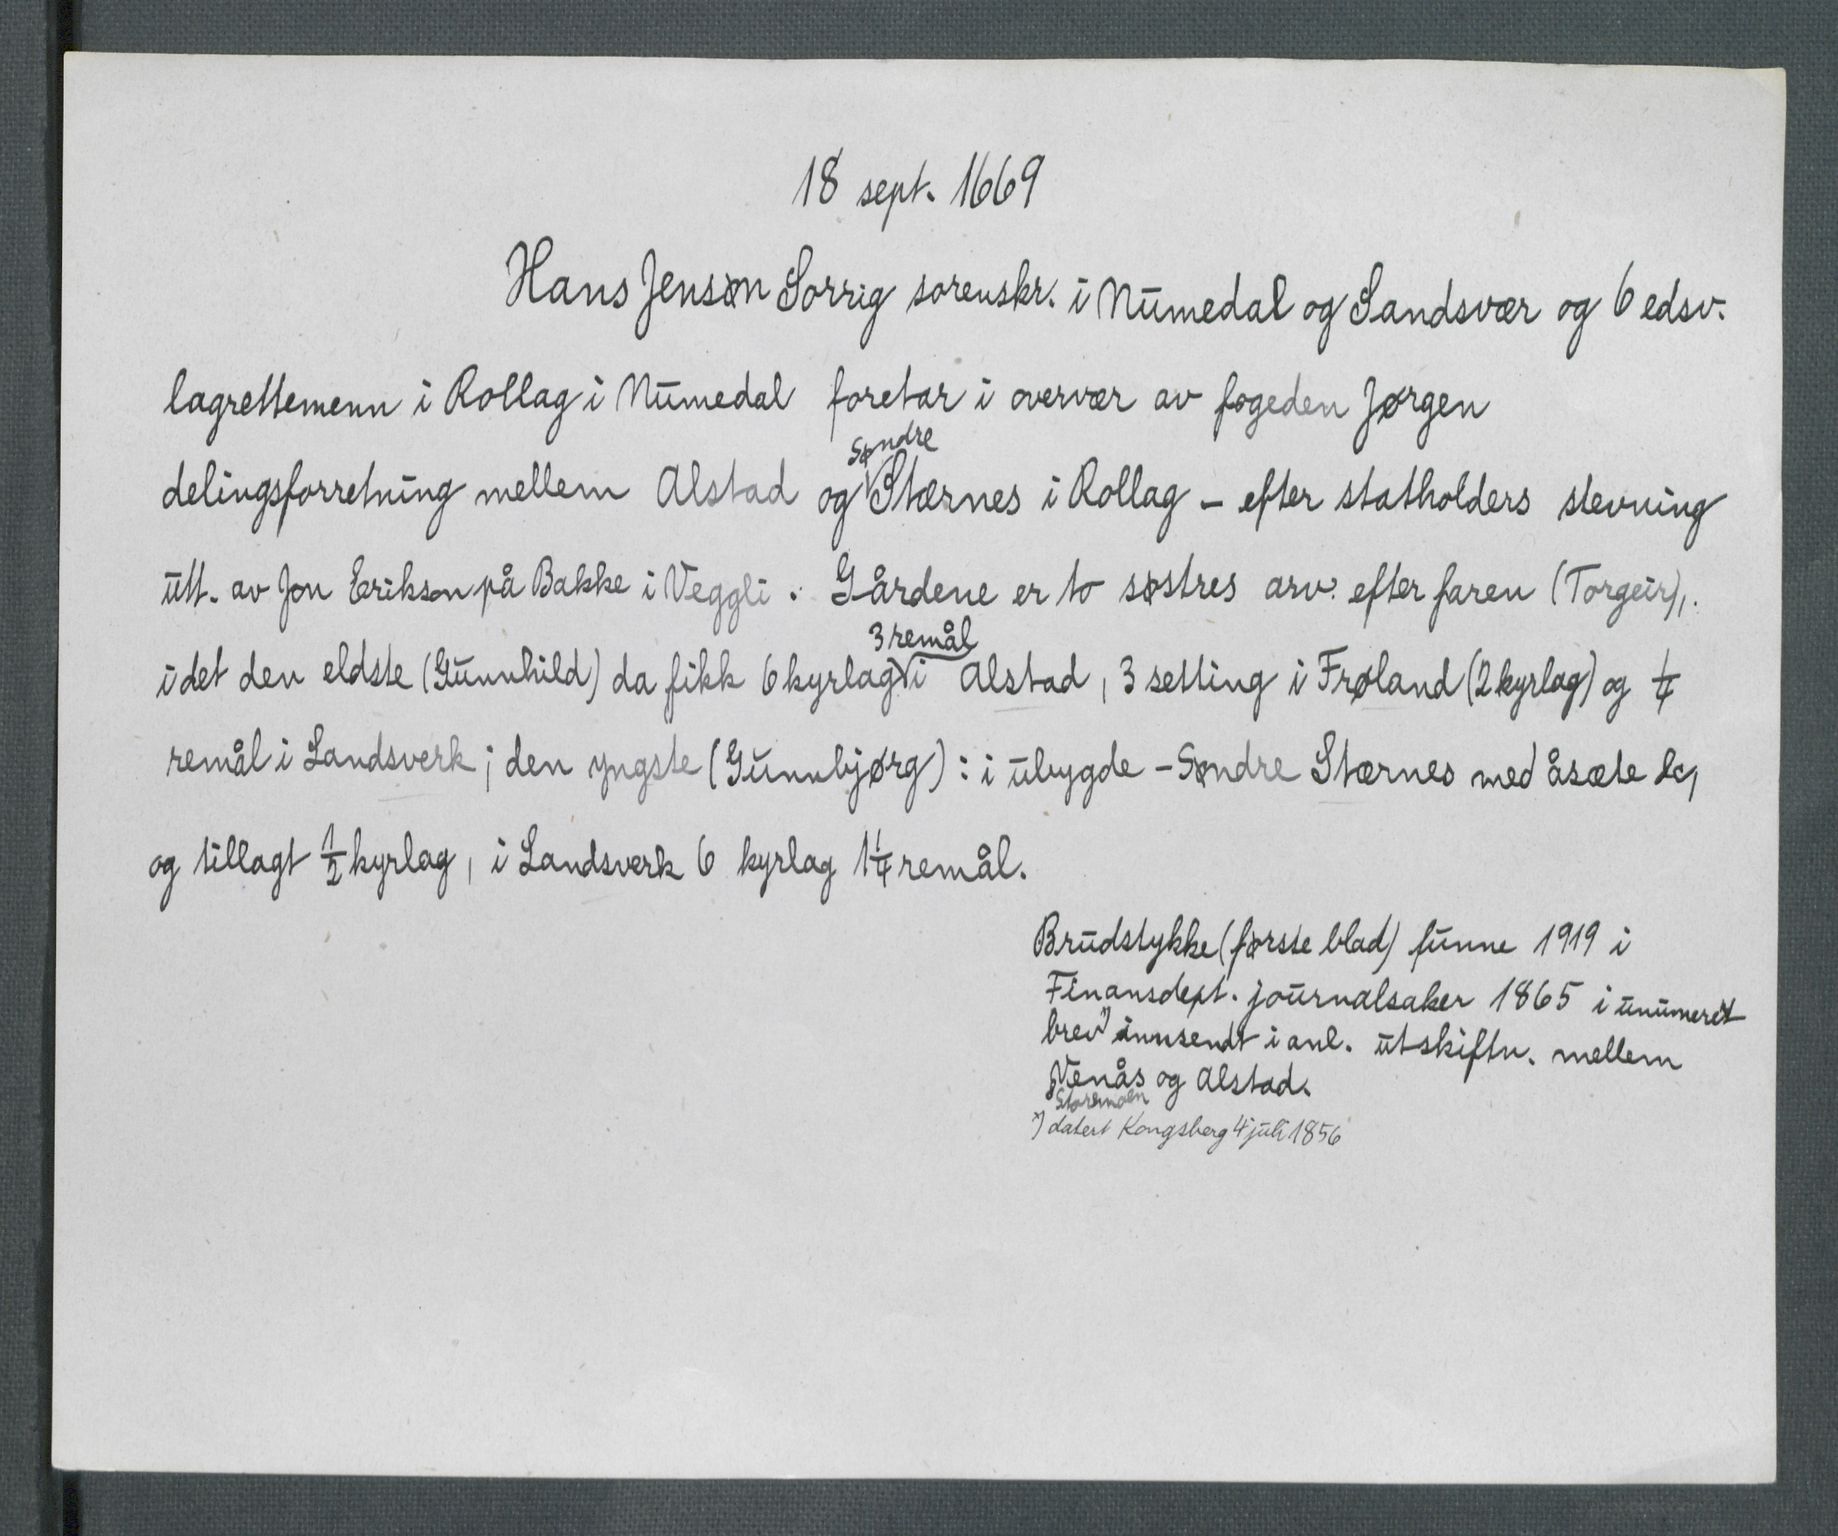 18 sept. 1669
Hans Jensøn Sorrig sorenskr. i Numedal og Sandsvær og 6 edsv.
lagrettemenn i Rollag i Numedal foretar i overvær av fogeden Jørgen
delingsforretning mellem Alstad og Søndre Stærnes i Rollag - efter statholders stevning
utt. av Jon Erikson på Bakke i Veggli. Gårdene er to søstres arv efter faren (Torgeir),
idet den eldste (Gunnhild) da fikk 6 kyrlag 3 remål i Alstad, 3 setting i Frøland (2 kyrlag) og 1/4
remål i Landsverk; den yngste (Gunnbjørg): i ubygde - Søndre Stærnes med åsæte &c,
og tillagt 1/2 kyrlag, i Landsverk 6 kyrlag 1 1/4 remål.
Brudstykke (første blad) funne 1919 i
Finansdept. journalsaker 1865 i unumeret
brev *) innsendt i anl. utskiftn. mellem
Venås og Alstad.
Storemoen
*) datert Kongsberg 4 juli 1856